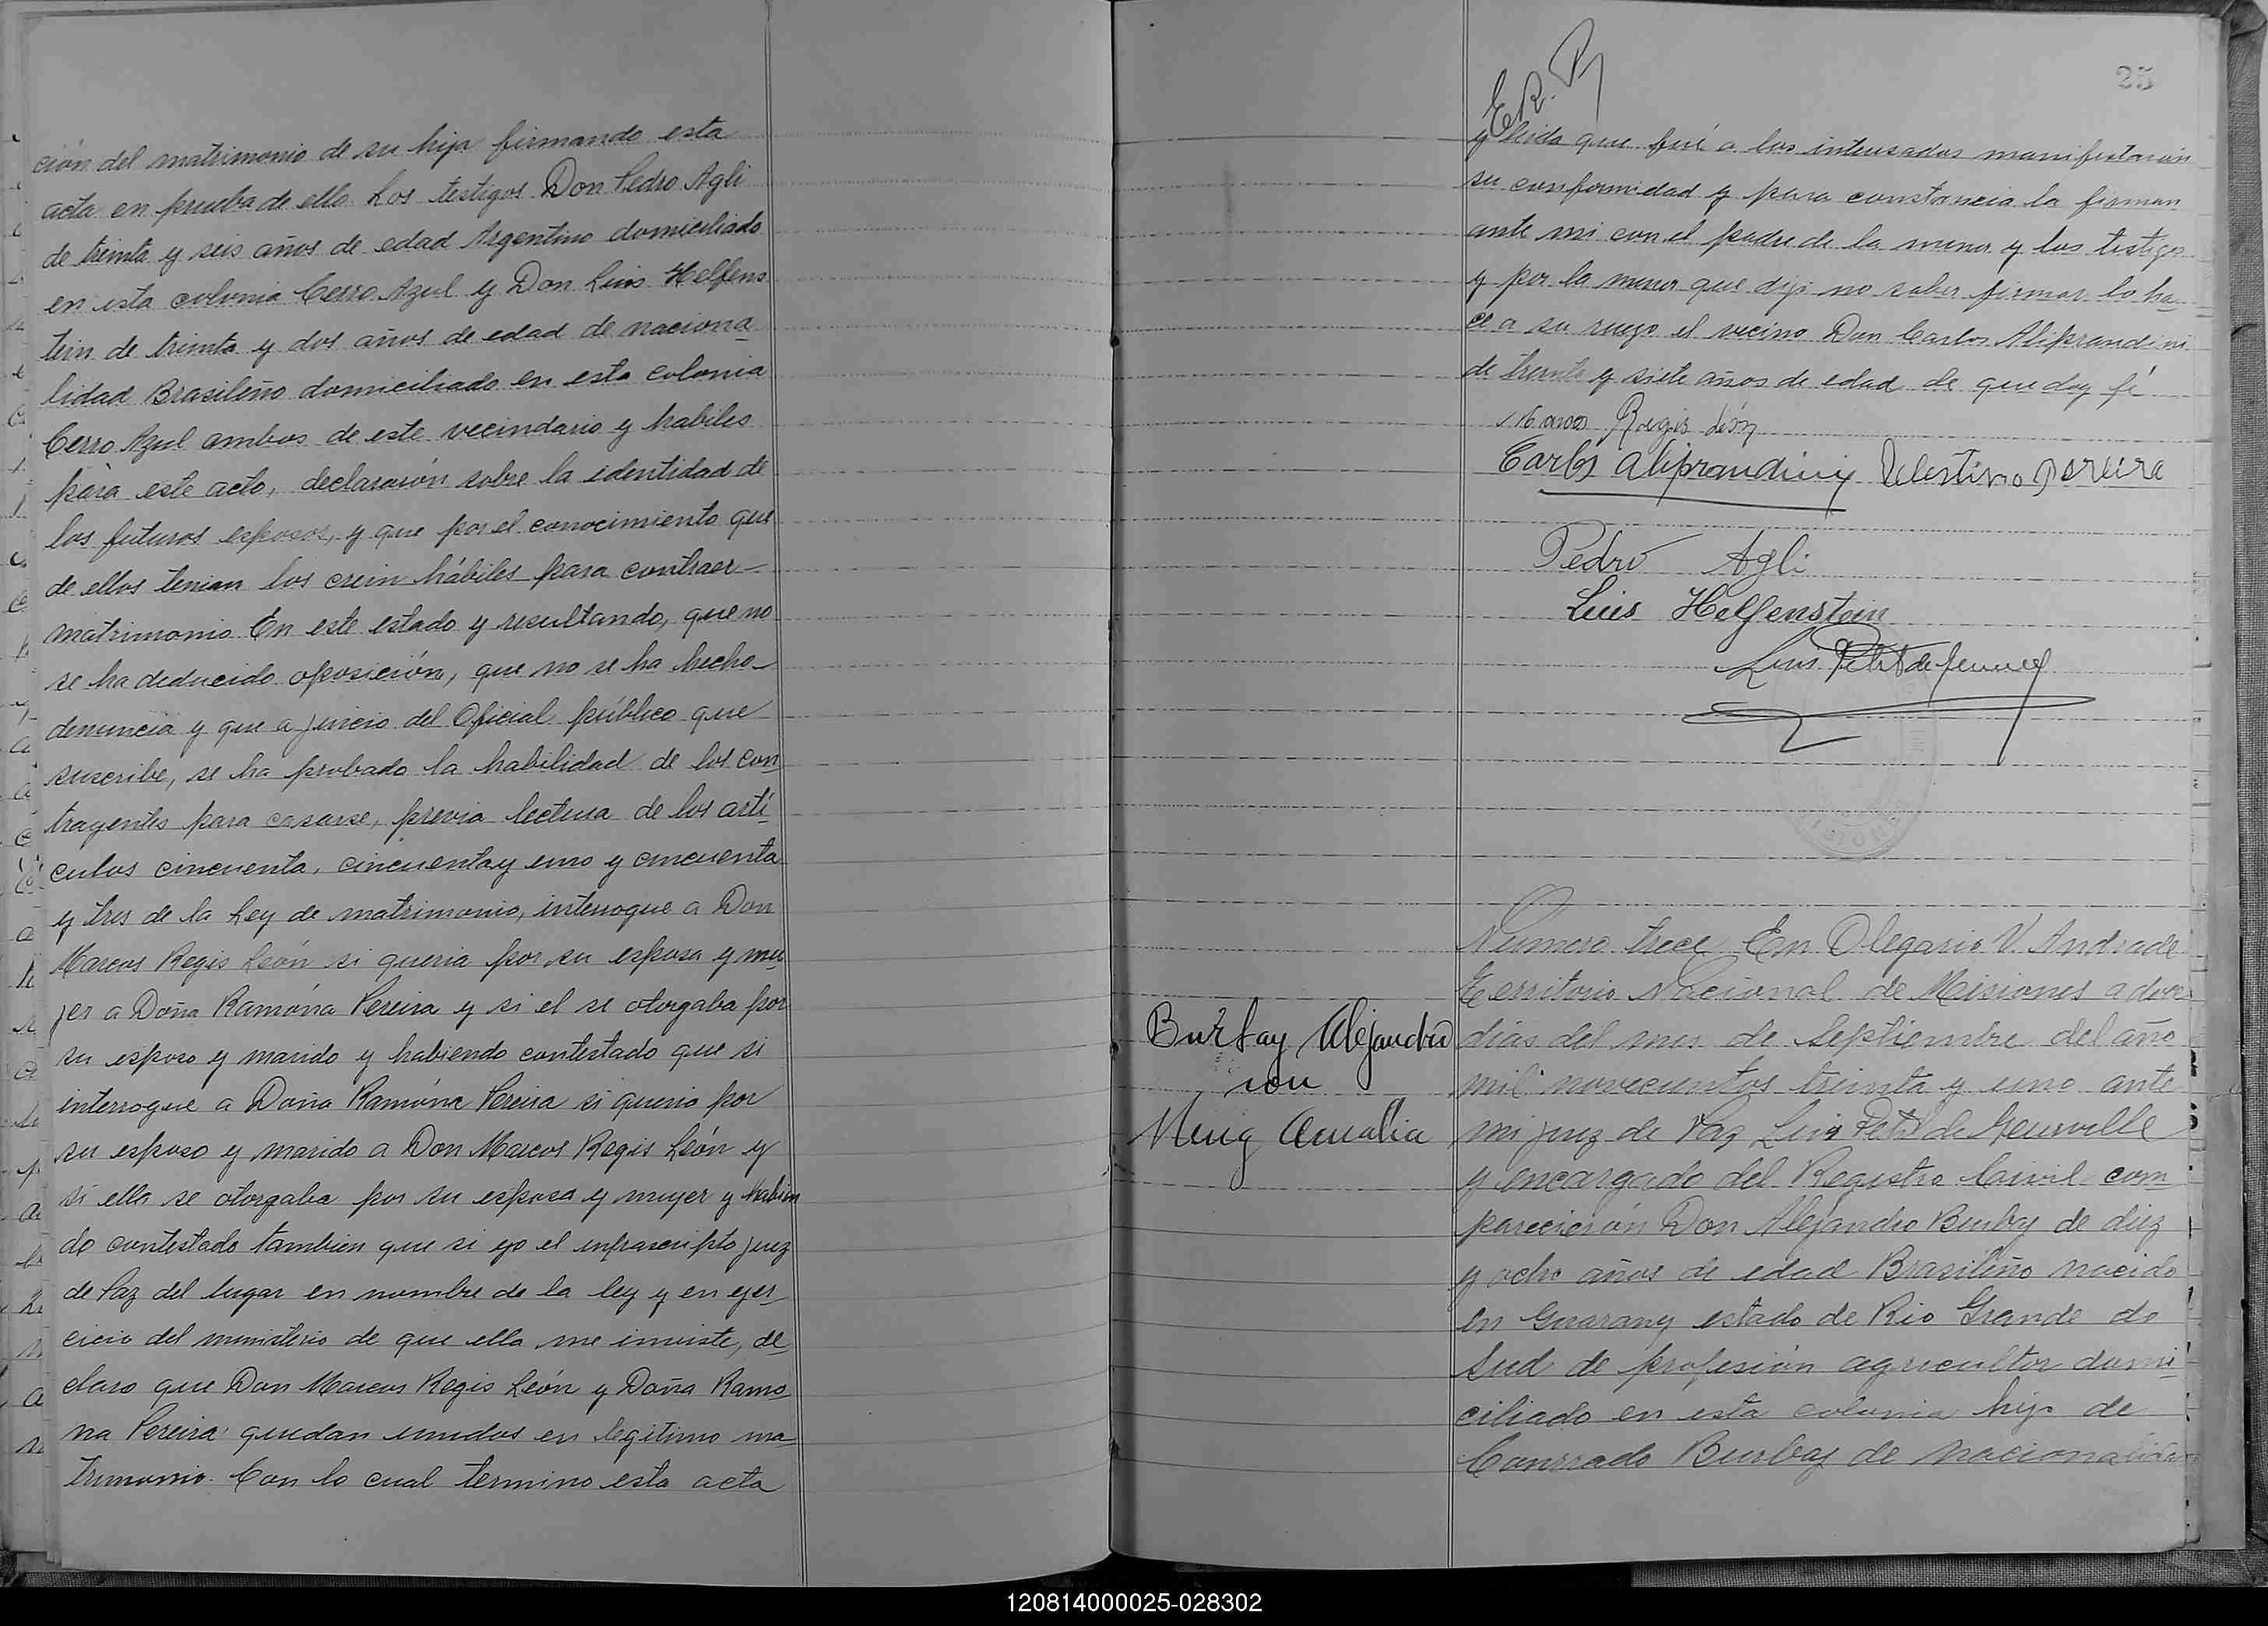 ción del matrimonio de su hija firmando esta
acta en prueba de ello Los testigos Don Pedro Agli
de treinta y seis años de edad Argentino domiciliado
en esta colonia Cerro Azul y Don Luis Helfens
tein de treinta y dos años de edad de naciona
lidad Brasileño domiciliado en esta colonia
Cerro Azul ambos de este vecindario y habiles
pára este acto, declararón sobre la identidad de
los futuros esposos, y que por el conocimiento que
de ellos tenian los crein hábiles para contraer
matrimonio En este estado y resultando, que no
se ha deducido oposición, que no se ha hecho
denuncia y que a juicio del Oficial público que
suscribe, se ha probado la habilidad de los con
trayentes para casarse, previa lectura de los artí
culos cincuenta, cincuenta y uno y cincuenta
y tres de la Ley de matrimonio, interrogue a Don
Marcos Regis León si queria por su esposa y mu
jer a Doña Ramóna Pereira y si el se otorgaba por
su esposo y marido y habiendo contestado que si
interrogue a Doña Ramóna Pereira si queria por
su esposo y marido a Don Marcos Regis León y
si ella se otorgaba por su esposa y mujer y habien
do contestado tambien que si yo el infrascripto juez
de Paz del lugar en nombre de la ley y en ejer
cicio del ministerio de que ella me inviste, de
claro que Don Marcos Regis León y Doña Ramo
na Pereira quedan unidos en legitimo ma
trimonio. Con lo cual termino esta acta
25
E. R. P
y leida que fué a los interesados manifestarón
su conformidad y para constancia la firman
ante mi con el padre de la menor y los testigos
y por la menor que dijo no saber firmar lo ha
ce a su ruego el vecino Don Carlos Aliprandini
de treinta y siete años de edad de que doy fé
Regis León
Carlos Aliprandini Pereira
Pedro Agli
Luis Helfenstein
Luis Petit de
Numero trece En Olegario V. Andrade
Territorio Nacional de Misiones a doce
dias del mes de Septiembre del año
mil novecientos treinta y uno ante
mi juez de Paz Luis Petit de Meurville
y encargado del Registro Civil com
parecierón Don Alejandro Burbay de diez
y ocho años de edad Brasileño nacido
en Guarany estado de Rio Grande do
Sud de profesión agricultor domi
ciliado en esta colonia hijo de
Conrrado Burbay de nacionalidad
Alejandro
con
Amalia
120814000025-028302